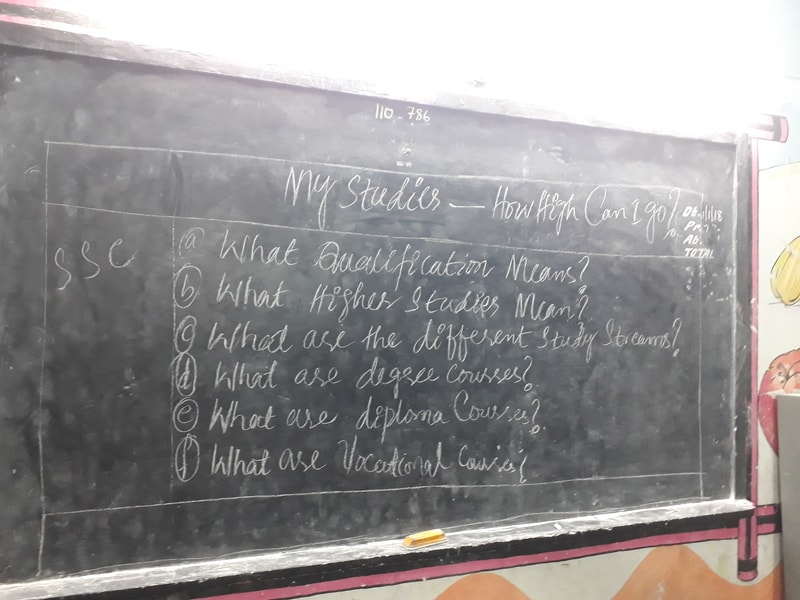 110 - 786
My Studies — How High Can I go?
Dt. 1/1/18
Pr.
Ab.
TOTAL
SSC
(a) What Qualification Means?
(b) What Higher Studies Mean?
(c) What are the different Study Streams?
(d) What are degree courses?
(e) What are diploma Courses?
(f) What are Vocational Courses?